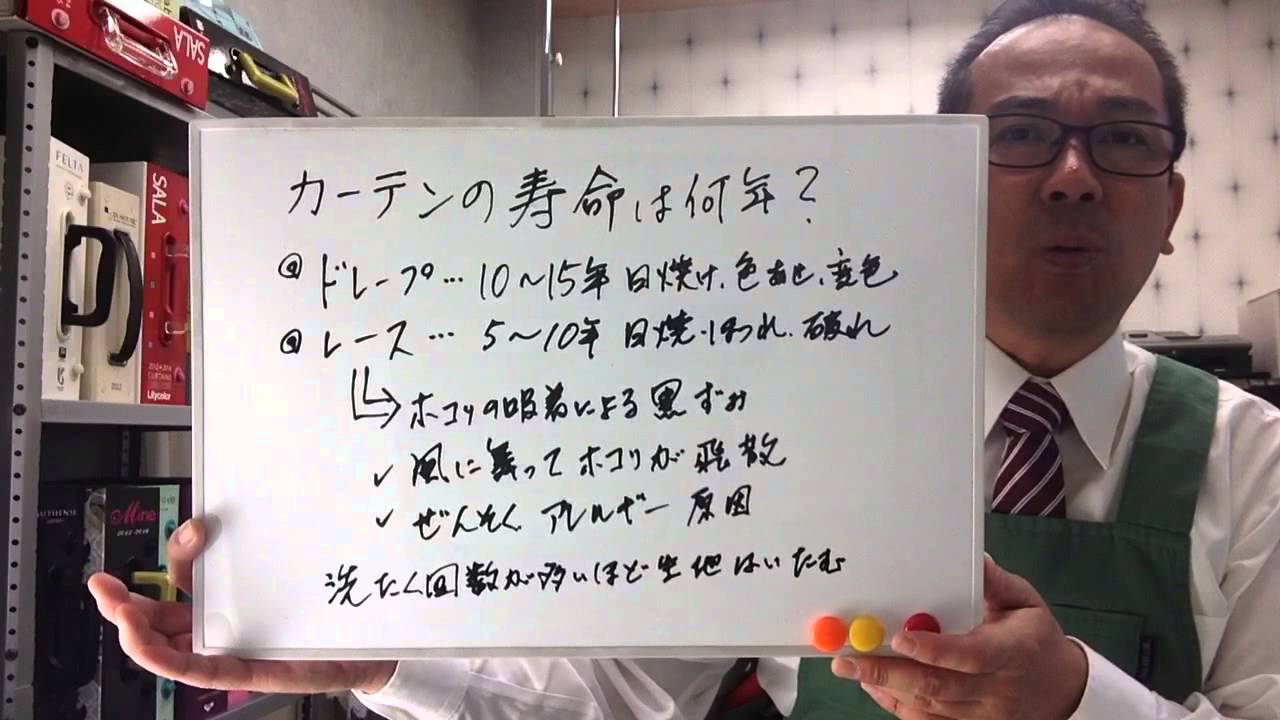 カーテンの寿命は何年?
ドレープ… 10〜15年 日焼け、色あせ、変色
レース… 5〜10年 日焼・ほつれ、破れ
ホコリの吸着による黒ずみ
✓ 風に舞ってホコリが飛散
✓ ぜんそく アレルギー 原因
洗たく回数が多いほど生地はいたむ
SALA
FELTA
SALA
Lilycolor
Mine